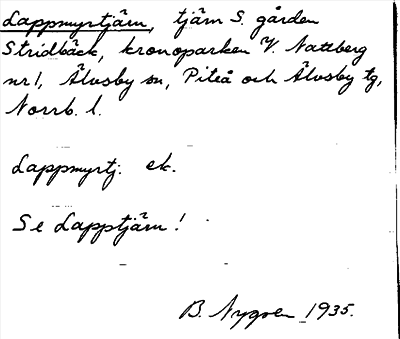 Lappmyrtjärn, tjärn S. gården
Stridbäck, kronoparken V. Nattberg
nr 1, Älvsby sn, Piteå och Älvsby tg,
Norrb. l.
Lappmyrtj. ek.
Se Lapptjärn!
B. Nygren 1935.